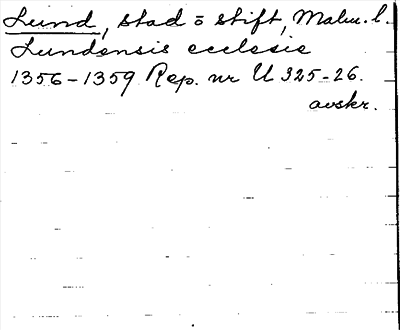 Lund, stad o stift, Malm. l.
Lundensis ecclesie
1356-1359 Rep. nr U 325-26.
avskr.